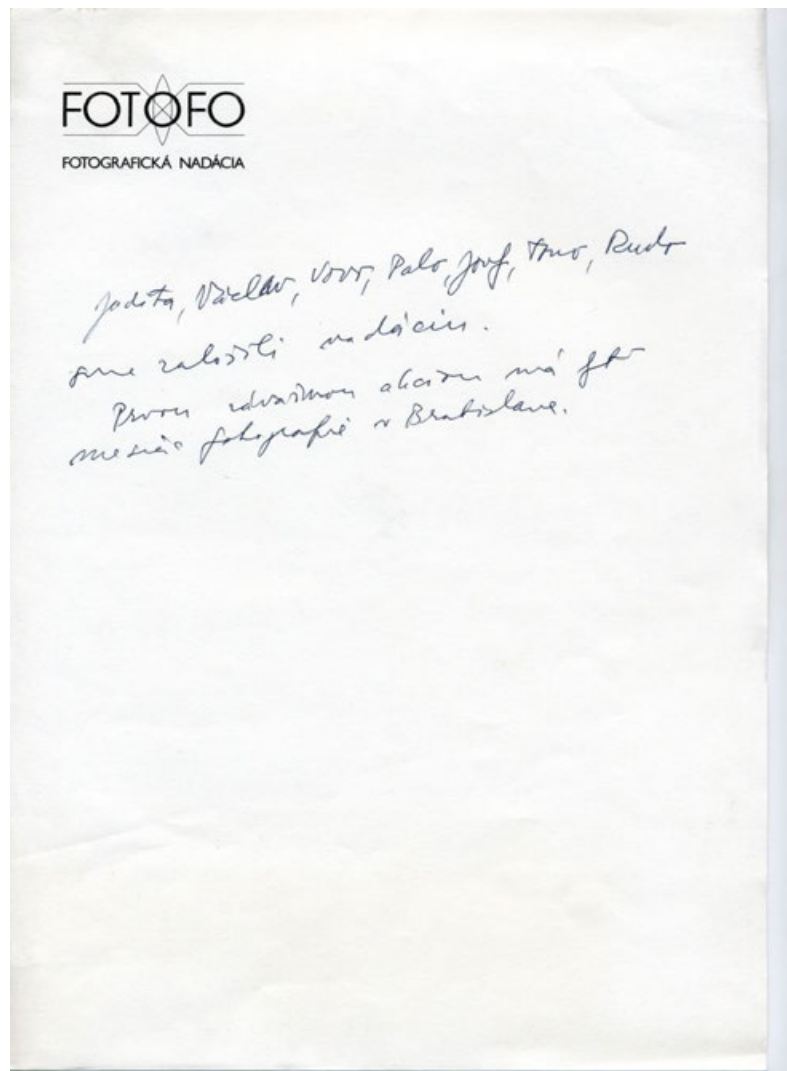 FOTOFO
FOTOGRAFICKÁ NADÁCIA
Judita, Václav, Vovo, Palo, Jozef, Tono, Rudo
sme založili nadáciu.
Prvou závažnou akciou má byť
mesiac fotografie v Bratislave.